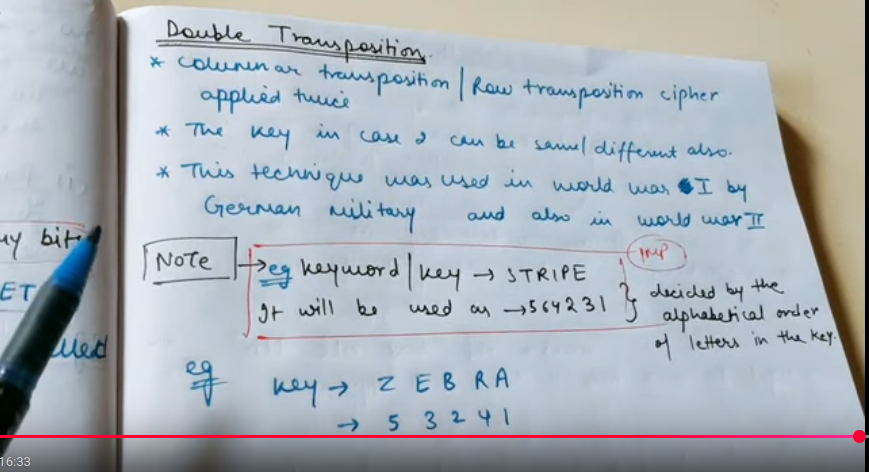 Double Transposition
* Columnar transposition / Row transposition cipher
applied twice
* The key in case 2 can be same/different also.
* This technique was used in world war I by
German military and also in world war II
Note → eg keyword / key → STRIPE
It will be used as → 564231
IMP
decided by the
alphabetical order
of letters in the key.
eg key → Z E B R A
→ 5 3 2 4 1
ET
16:33